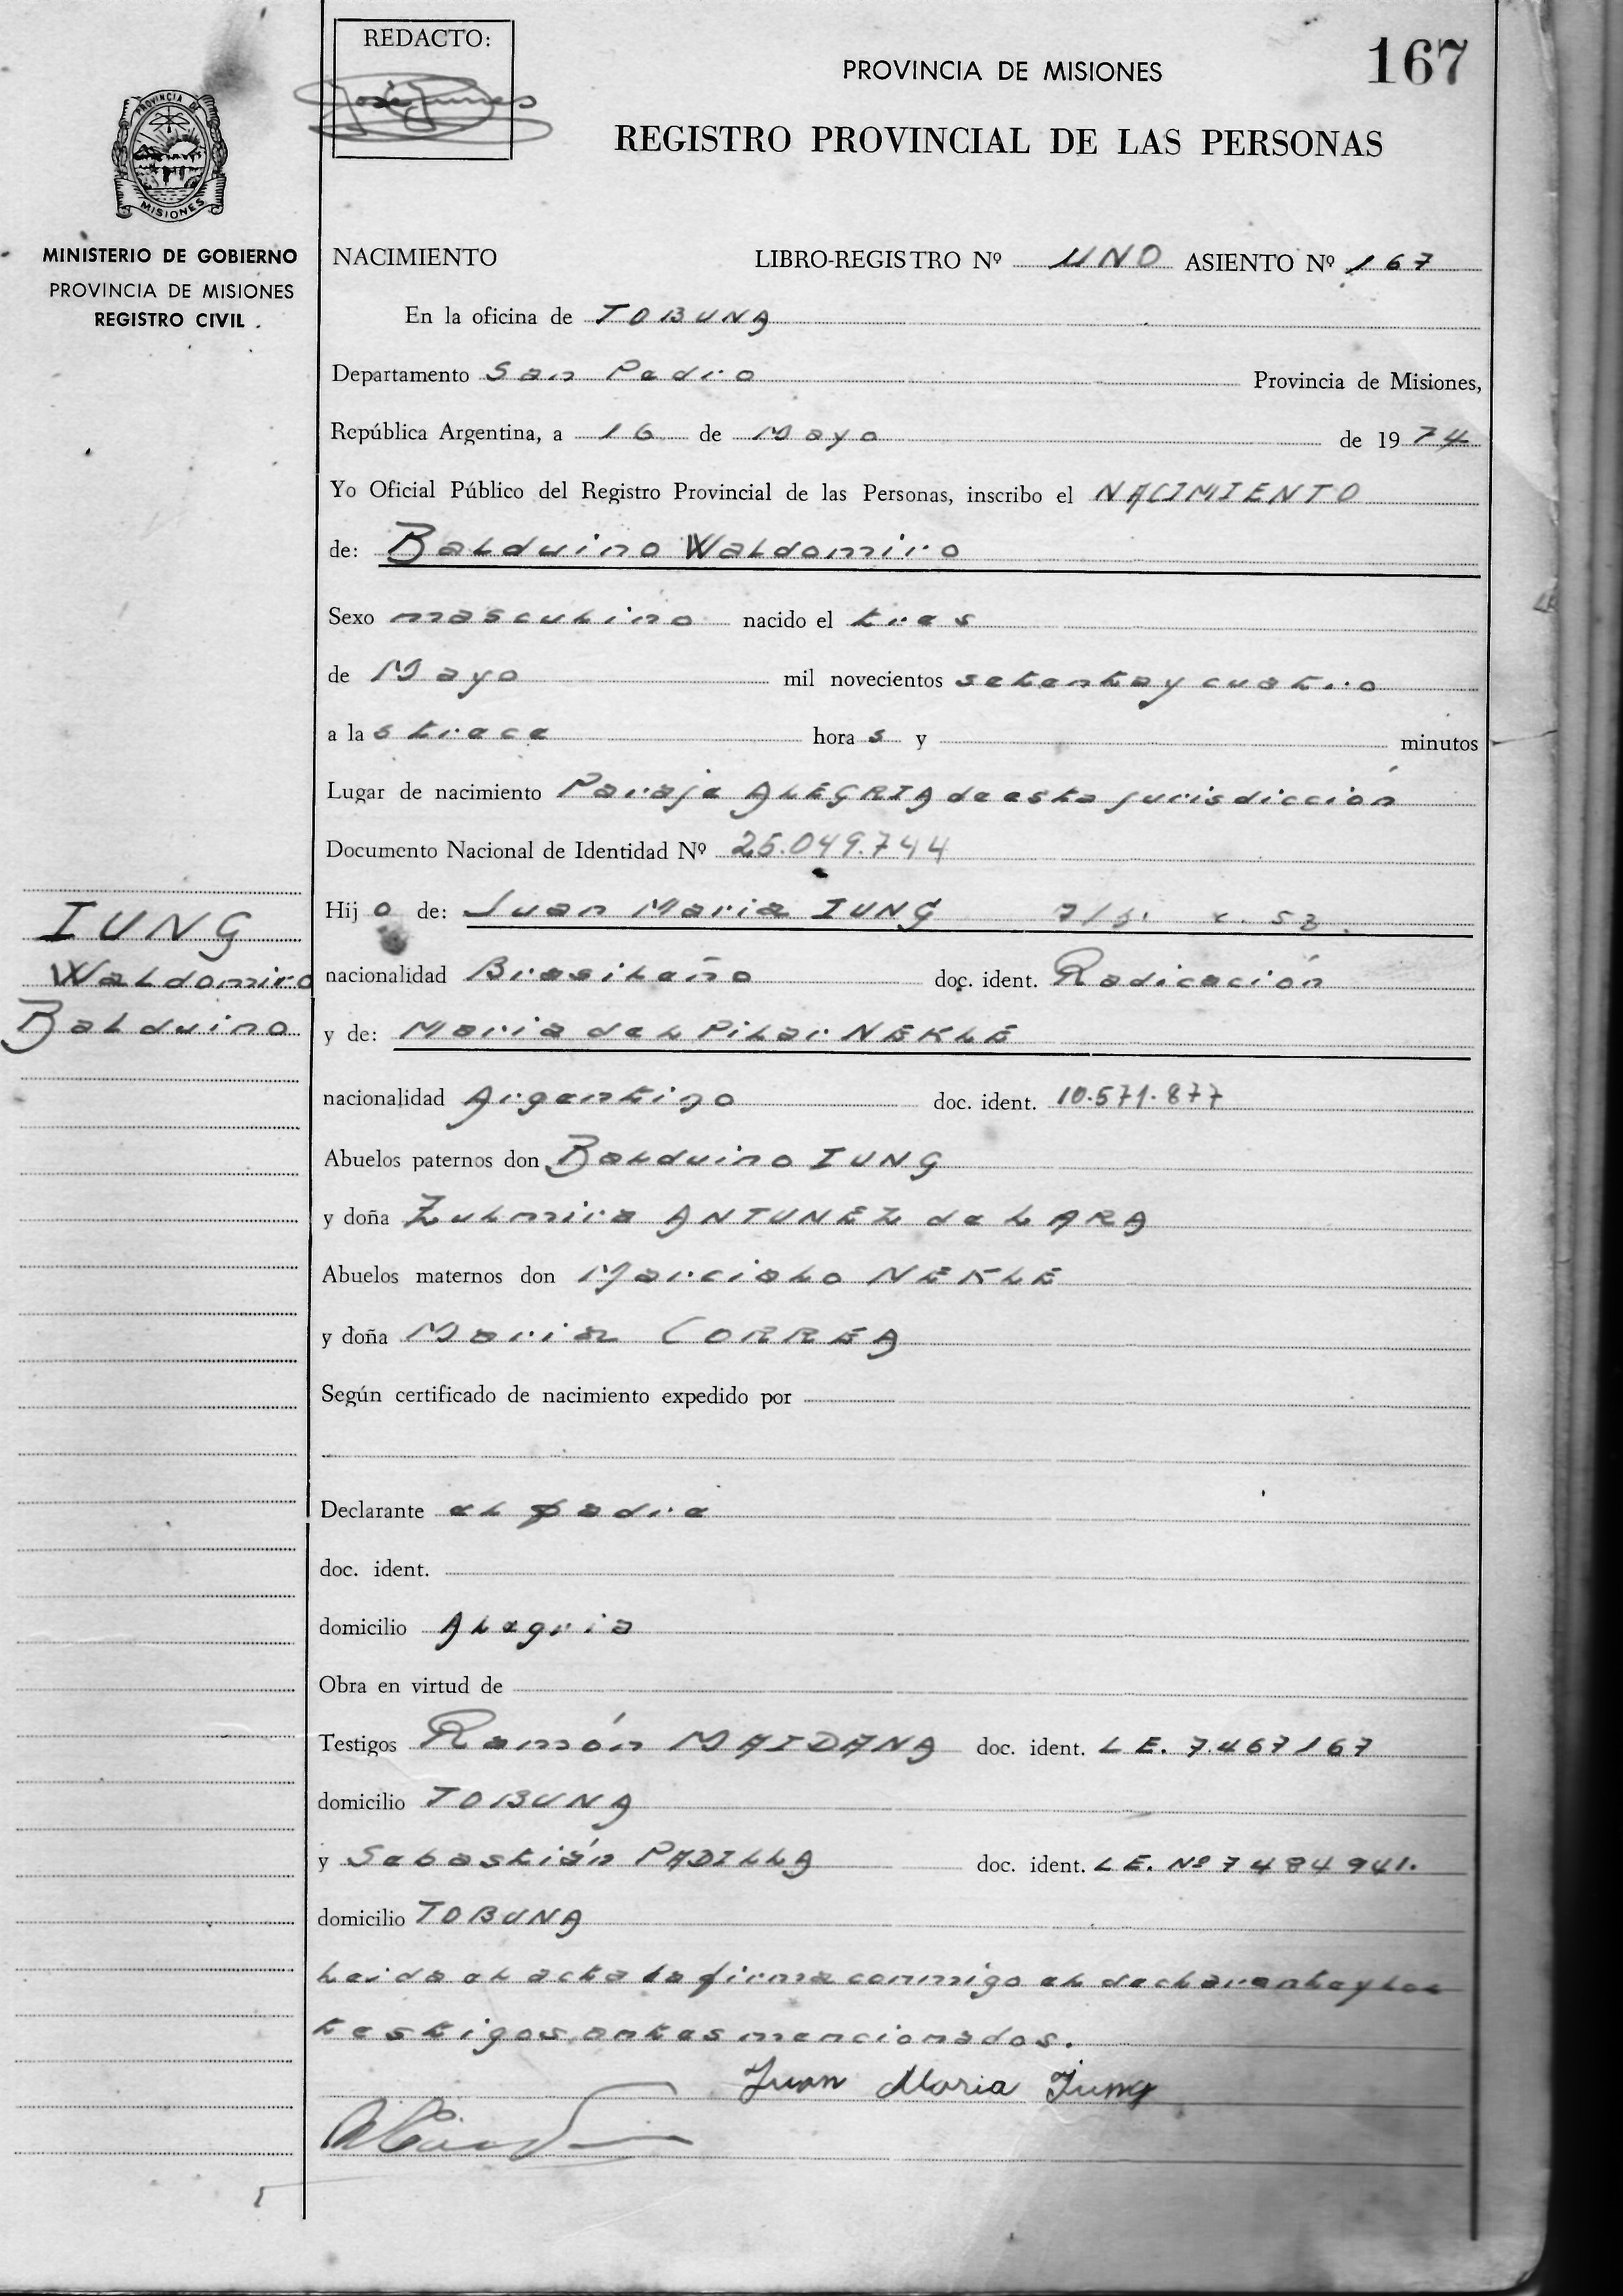 REDACTO:
PROVINCIA DE MISIONES
167
REGISTRO PROVINCIAL DE LAS PERSONAS
PROVINCIA DE
MISIONES
MINISTERIO DE GOBIERNO
PROVINCIA DE MISIONES
REGISTRO CIVIL
NACIMIENTO LIBRO-REGISTRO Nº UNO ASIENTO Nº 167
En la oficina de TOBUNA
Departamento San Pedro Provincia de Misiones,
República Argentina, a 16 de Mayo de 1974
Yo Oficial Público del Registro Provincial de las Personas, inscribo el NACIMIENTO
de: Balduino Waldomiro
Sexo masculino nacido el tres
de Mayo mil novecientos setenta y cuatro
a las trece horas y minutos
Lugar de nacimiento Paraje ALEGRIA de esta jurisdicción
Documento Nacional de Identidad Nº 26.049.744
Hijo de: Juan Maria IUNG
nacionalidad Brasileño doc. ident. Radicación
y de: Maria del Pilar NEKLE
nacionalidad Argentina doc. ident. 10.571.877
Abuelos paternos don Balduino IUNG
y doña Zulmira ANTUNEZ de LARA
Abuelos maternos don Marcialo NEKLE
y doña Maria CORREA
Según certificado de nacimiento expedido por
Declarante el padre
doc. ident.
domicilio Alegria
Obra en virtud de
Testigos Ramón MAIDANA doc. ident. L E. 7.467167
domicilio TOBUNA
y Sebastián PADILLA doc. ident. L E. Nº 7484941.
domicilio TOBUNA
Leida el acta la firma conmigo el declarante y los
testigos antes mencionados.
Juan Maria Iung
IUNG
Waldomiro
Balduino